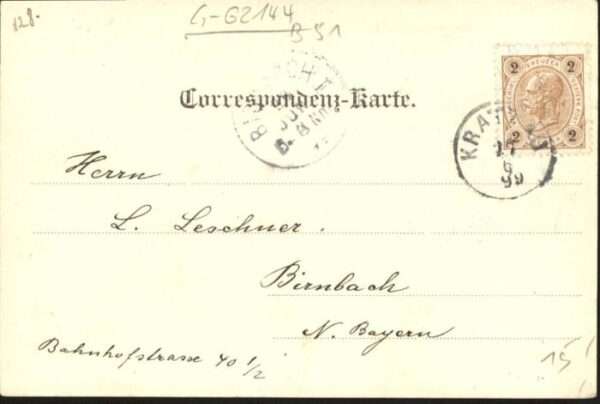 128.
G-G2144
B 51
Correspondenz-Karte.
2 KREUZER 2
2 2
17
6
99
Herrn
L. Leschner.
Birnbach
N. Bayern
Bahnhofstrasse 40 1/2
15